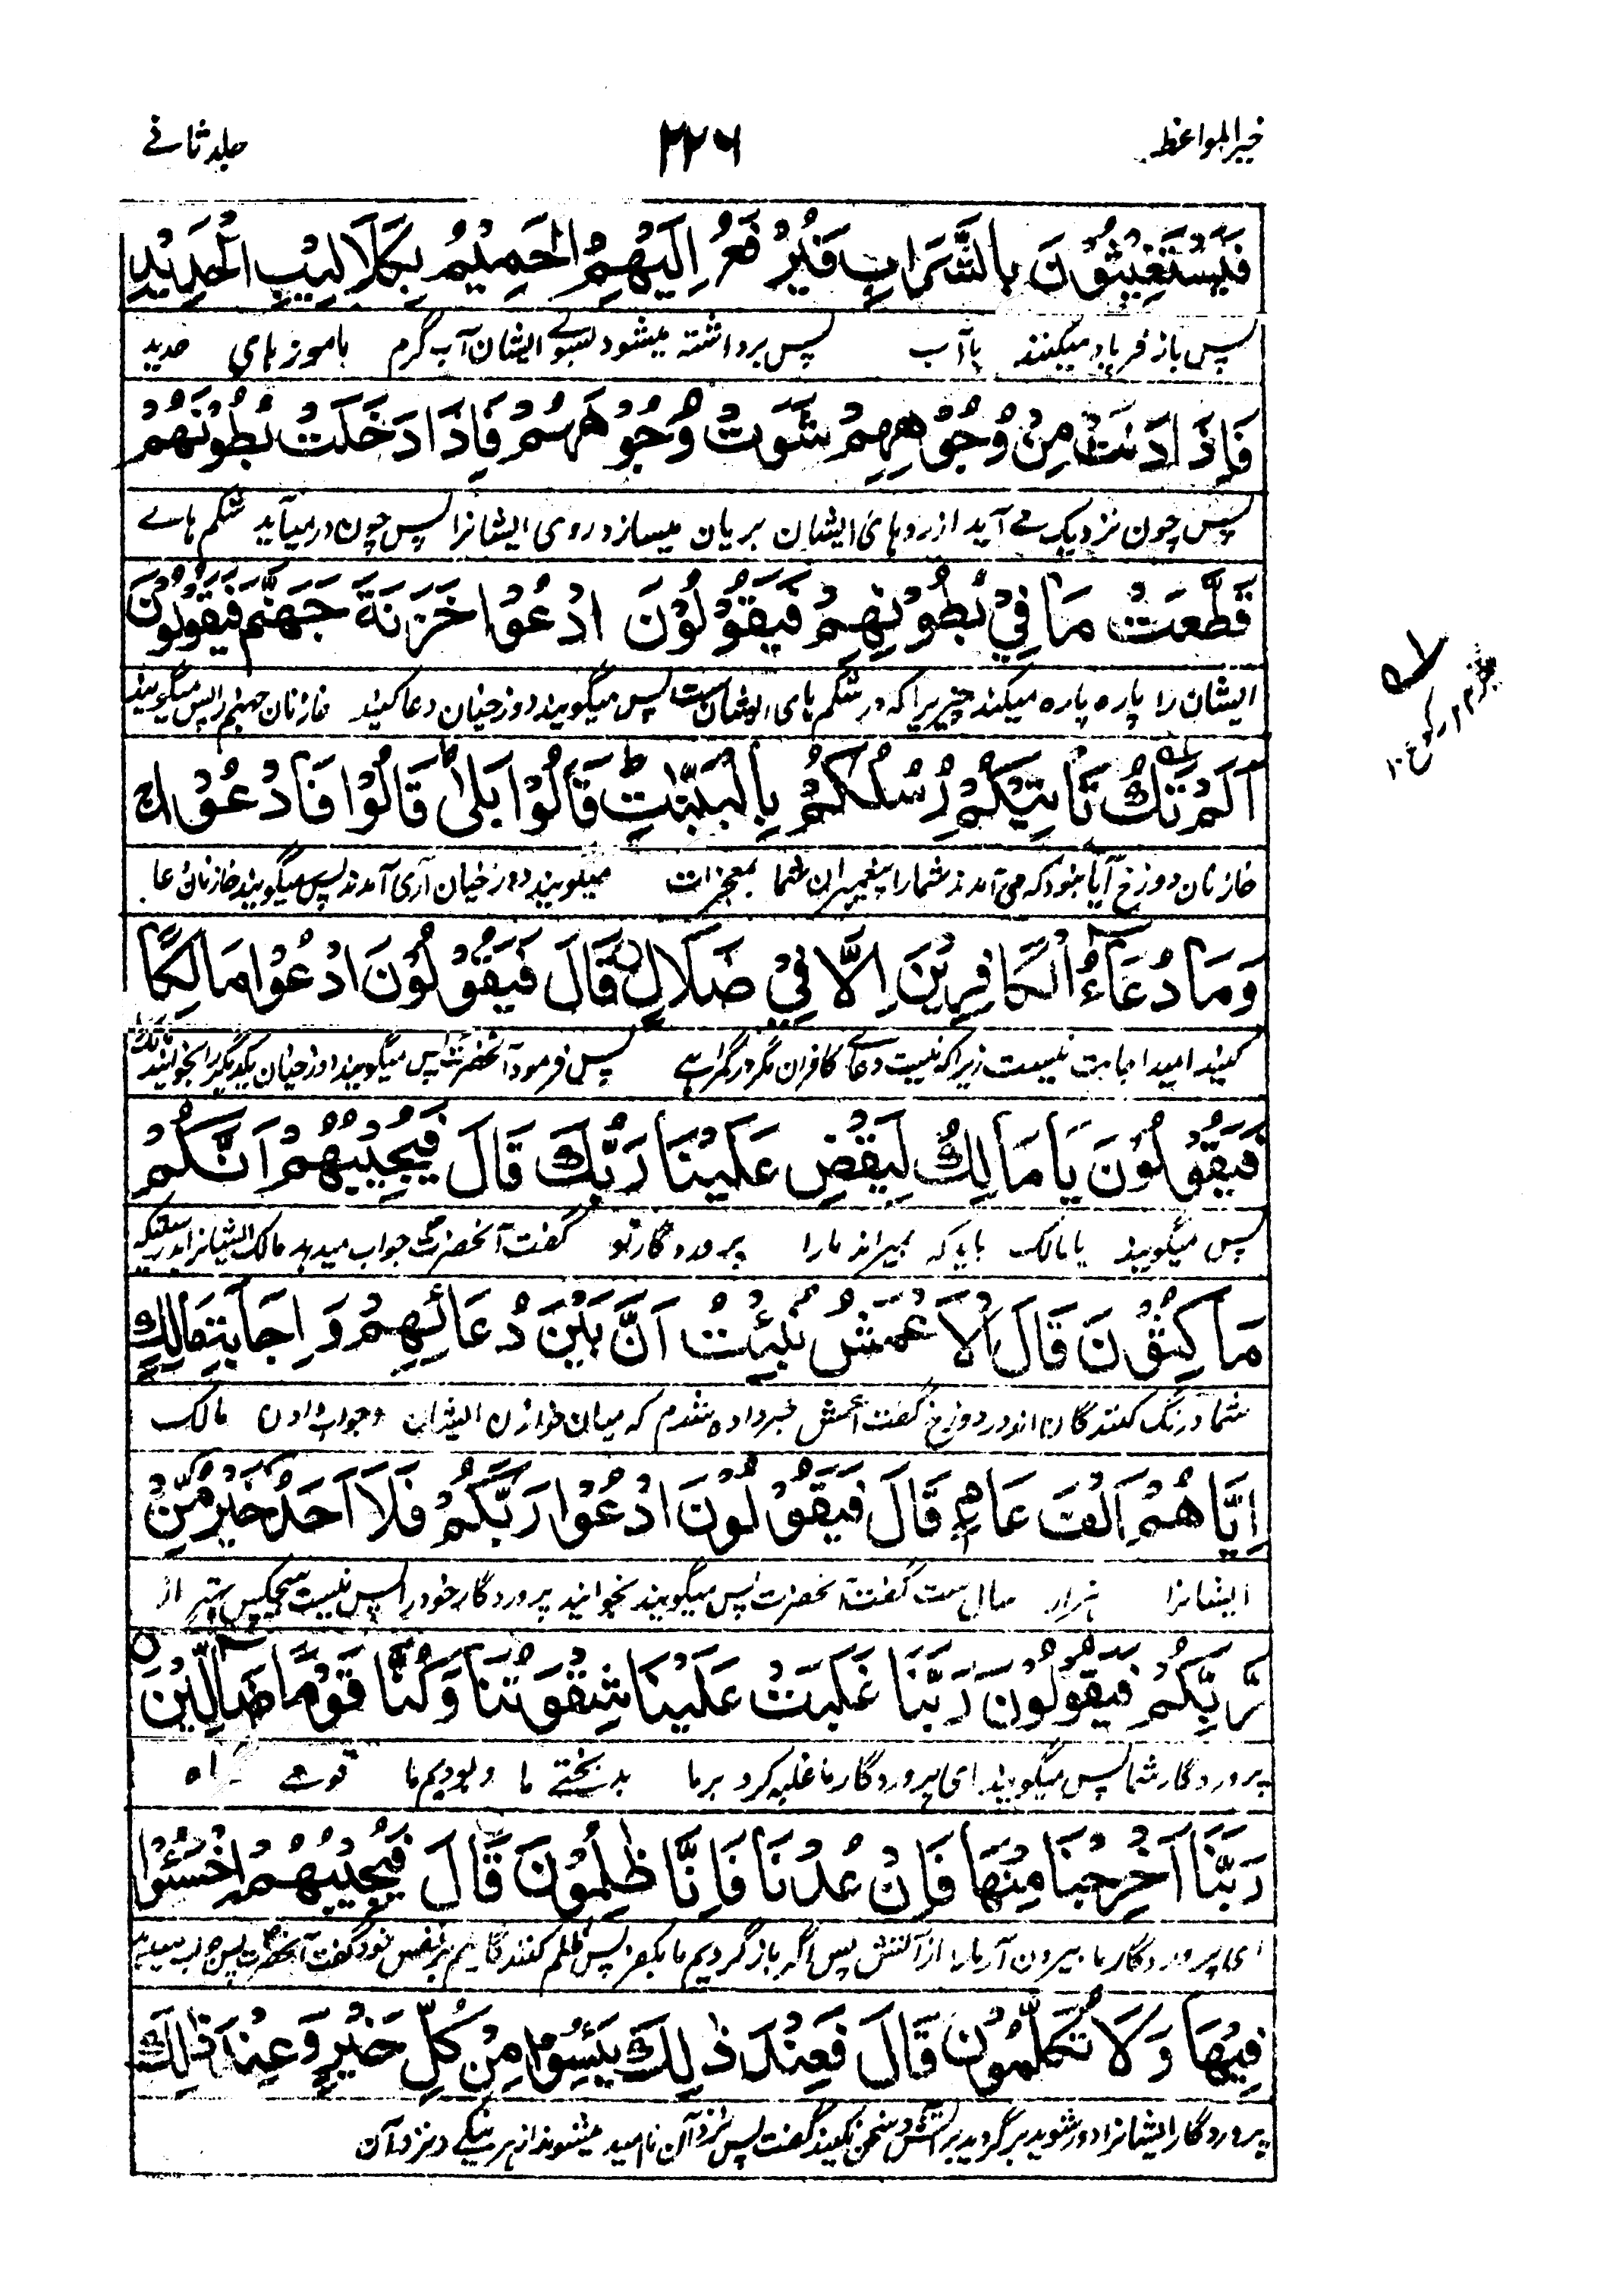 خیرالمواعظ ۲۲۶ جلد ثانی
فَيَسْتَغِيْثُوْنَ بِالشَّرَابِ فَيُرْفَعُ اِلَيْهِمُ الْحَمِيْمُ بِكَلَالِيْبِ الْحَدِيْدِ
پس باز فریاد میکنند باآب پس برداشته میشود بسوے ایشان آب گرم باموزہای حدید
فَاِذَا دَنَتْ مِنْ وُجُوْهِهِمْ شَوَتْ وُجُوْهَهُمْ فَاِذَا دَخَلَتْ بُطُوْنَهُمْ
پس چون نزدیک مے آید از روہای ایشان بریان میسازد روی ایشانرا پس چون درمیآید شکم ہاے
قَطَّعَتْ مَا فِيْ بُطُوْنِهِمْ فَيَقُوْلُوْنَ ادْعُوْا خَزَنَةَ جَهَنَّمَ فَيَقُوْلُوْنَ
ایشان را پارہ پارہ میکند چیزیرا کہ در شکم ہای ایشان ست پس میگویند دوزخیان دعا کنید خازنان جہنم را پس میگویند
اَلَمْ تَكُ تَاْتِيْكُمْ رُسُلُكُمْ بِالْبَيِّنٰتِ ط قَالُوْا بَلٰى ط قَالُوْا فَادْعُوْا ج
خازنان دوزخ آیا نبود کہ می آمدند شمارا پیغمبران شما بمعجزات میگویند دوزخیان آری آمدند پس میگویند خازنان دعا
وَمَا دُعَاۤءُ الْكَافِرِيْنَ اِلَّا فِيْ ضَلَالٍ قَالَ فَيَقُوْلُوْنَ ادْعُوْا مَالِكًا
کنید امید اجابت نیست زیرا کہ نیست دعاے کافران مگر در گمراہے پس فرمود آنحضرت پس میگویند دوزخیان یکدیگر را بخوانید مالک
فَيَقُوْلُوْنَ يَا مَالِكُ لِيَقْضِ عَلَيْنَا رَبُّكَ قَالَ فَيُجِيْبُهُمْ اِنَّكُمْ
پس میگویند یا مالک باید کہ بمیراند مارا پروردگار تو گفت آنحضرت جواب میدہد مالک ایشانرا بدرستیکہ
مَاكِثُوْنَ قَالَ الْاَعْمَشُ نُبِّئْتُ اَنَّ بَيْنَ دُعَائِهِمْ وَاِجَابَةِ مَالِكٍ
شما درنگ کنندگان اند در دوزخ گفت اعمش خبر دادہ شدم کہ میان خواندن ایشان و جواب دادن مالک
اِيَّاهُمْ اَلْفَ عَامٍ قَالَ فَيَقُوْلُوْنَ ادْعُوْا رَبَّكُمْ فَلَا اَحَدَ خَيْرٌ مِّنْ
ایشانرا ہزار سال ست گفت آنحضرت پس میگویند بخوانید پروردگار خود را پس نیست ہیچکس بہتر از
رَّبِّكُمْ فَيَقُوْلُوْنَ رَبَّنَا غَلَبَتْ عَلَيْنَا شِقْوَتُنَا وَكُنَّا قَوْمًا ضَاۤلِّيْنَ
پروردگار شما پس میگویند ای پروردگار ما غلبہ کرد برما بدبختے ما و بودیم ما قومے راہ
رَبَّنَا اَخْرِجْنَا مِنْهَا فَاِنْ عُدْنَا فَاِنَّا ظٰلِمُوْنَ قَالَ فَيُجِيْبُهُمْ اِخْسَئُوْا
ای پروردگار ما بیرون آر مارا از آتش پس اگر باز گردیم ما بکفر پس ظلم کنندگانیم بر نفس خود گفت آنحضرت پس جواب میدہد
فِيْهَا وَلَا تُكَلِّمُوْنِ قَالَ فَعِنْدَ ذٰلِكَ يَئِسُوْا مِنْ كُلِّ خَيْرٍ وَّعِنْدَ ذٰلِكَ
پروردگار ایشانرا دور شوید برگردید بر آتش و سخن نکنید گفت پس نزد آن ناامید میشوند از ہر نیکے و نزد آن